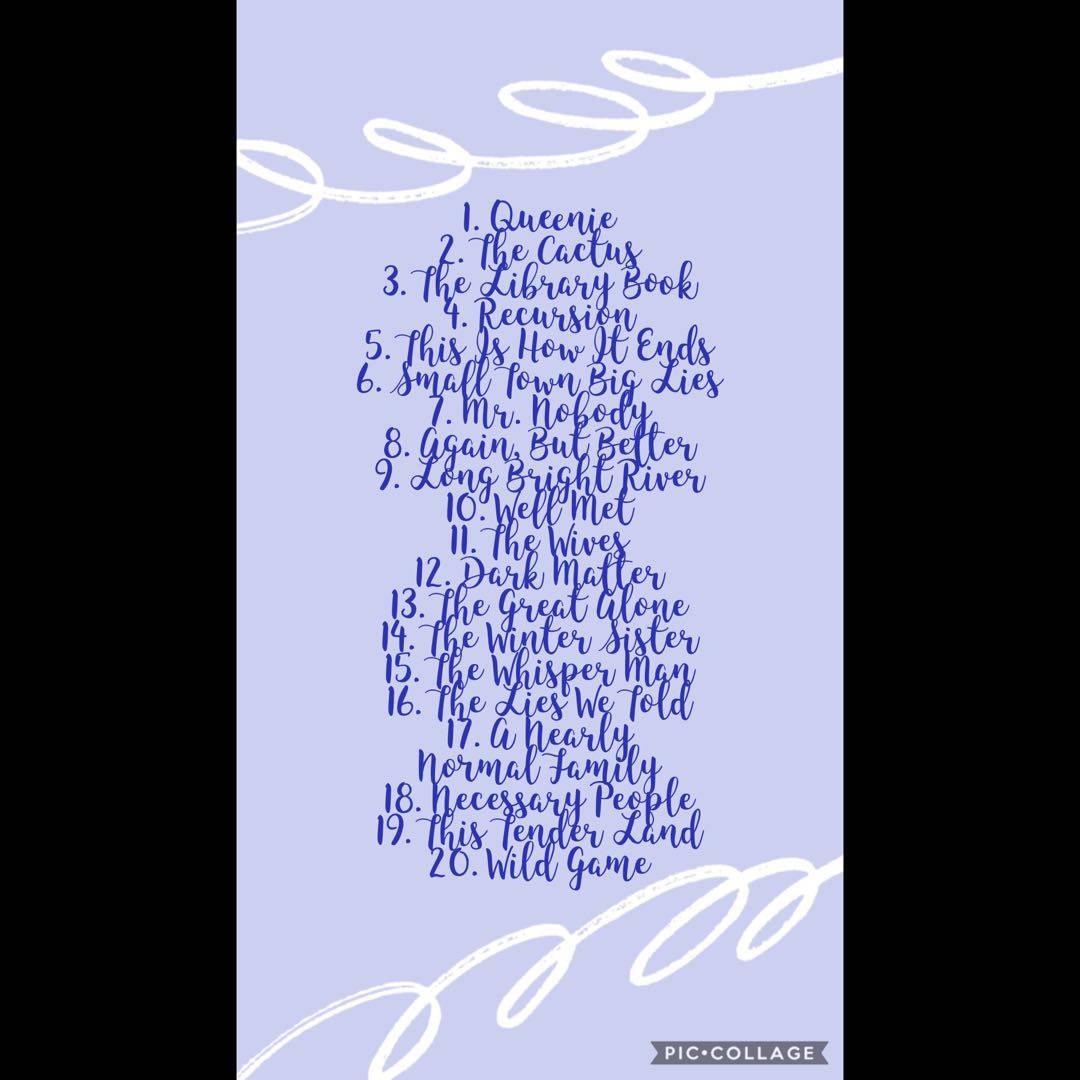 1. Queenie
2. The Cactus
3. The Library Book
4. Recursion
5. This Is How It Ends
6. Small Town Big Lies
7. Mr. Nobody
8. Again, But Better
9. Long Bright River
10. Well Met
11. The Wives
12. Dark Matter
13. The Great Alone
14. The Winter Sister
15. The Whisper Man
16. The Lies We Told
17. A Nearly
Normal Family
18. Necessary People
19. This Tender Land
20. Wild Game
PIC•COLLAGE